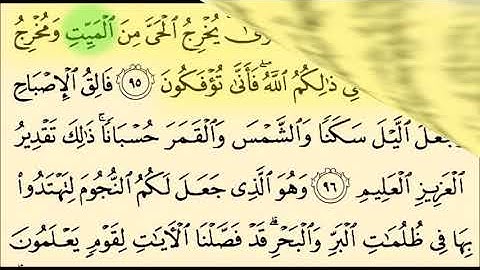 يُخْرِجُ ٱلْحَىَّ مِنَ ٱلْمَيِّتِ وَمُخْرِجُ
ذَٰلِكُمُ ٱللَّهُ ۖ فَأَنَّىٰ تُؤْفَكُونَ ٩٥ فَالِقُ ٱلْإِصْبَاحِ
ٱلَّيْلَ سَكَنًا وَٱلشَّمْسَ وَٱلْقَمَرَ حُسْبَانًا ۚ ذَٰلِكَ تَقْدِيرُ
ٱلْعَزِيزِ ٱلْعَلِيمِ ٩٦ وَهُوَ ٱلَّذِى جَعَلَ لَكُمُ ٱلنُّجُومَ لِتَهْتَدُوا۟
بِهَا فِى ظُلُمَٰتِ ٱلْبَرِّ وَٱلْبَحْرِ ۗ قَدْ فَصَّلْنَا ٱلْءَايَٰتِ لِقَوْمٍ يَعْلَمُونَ